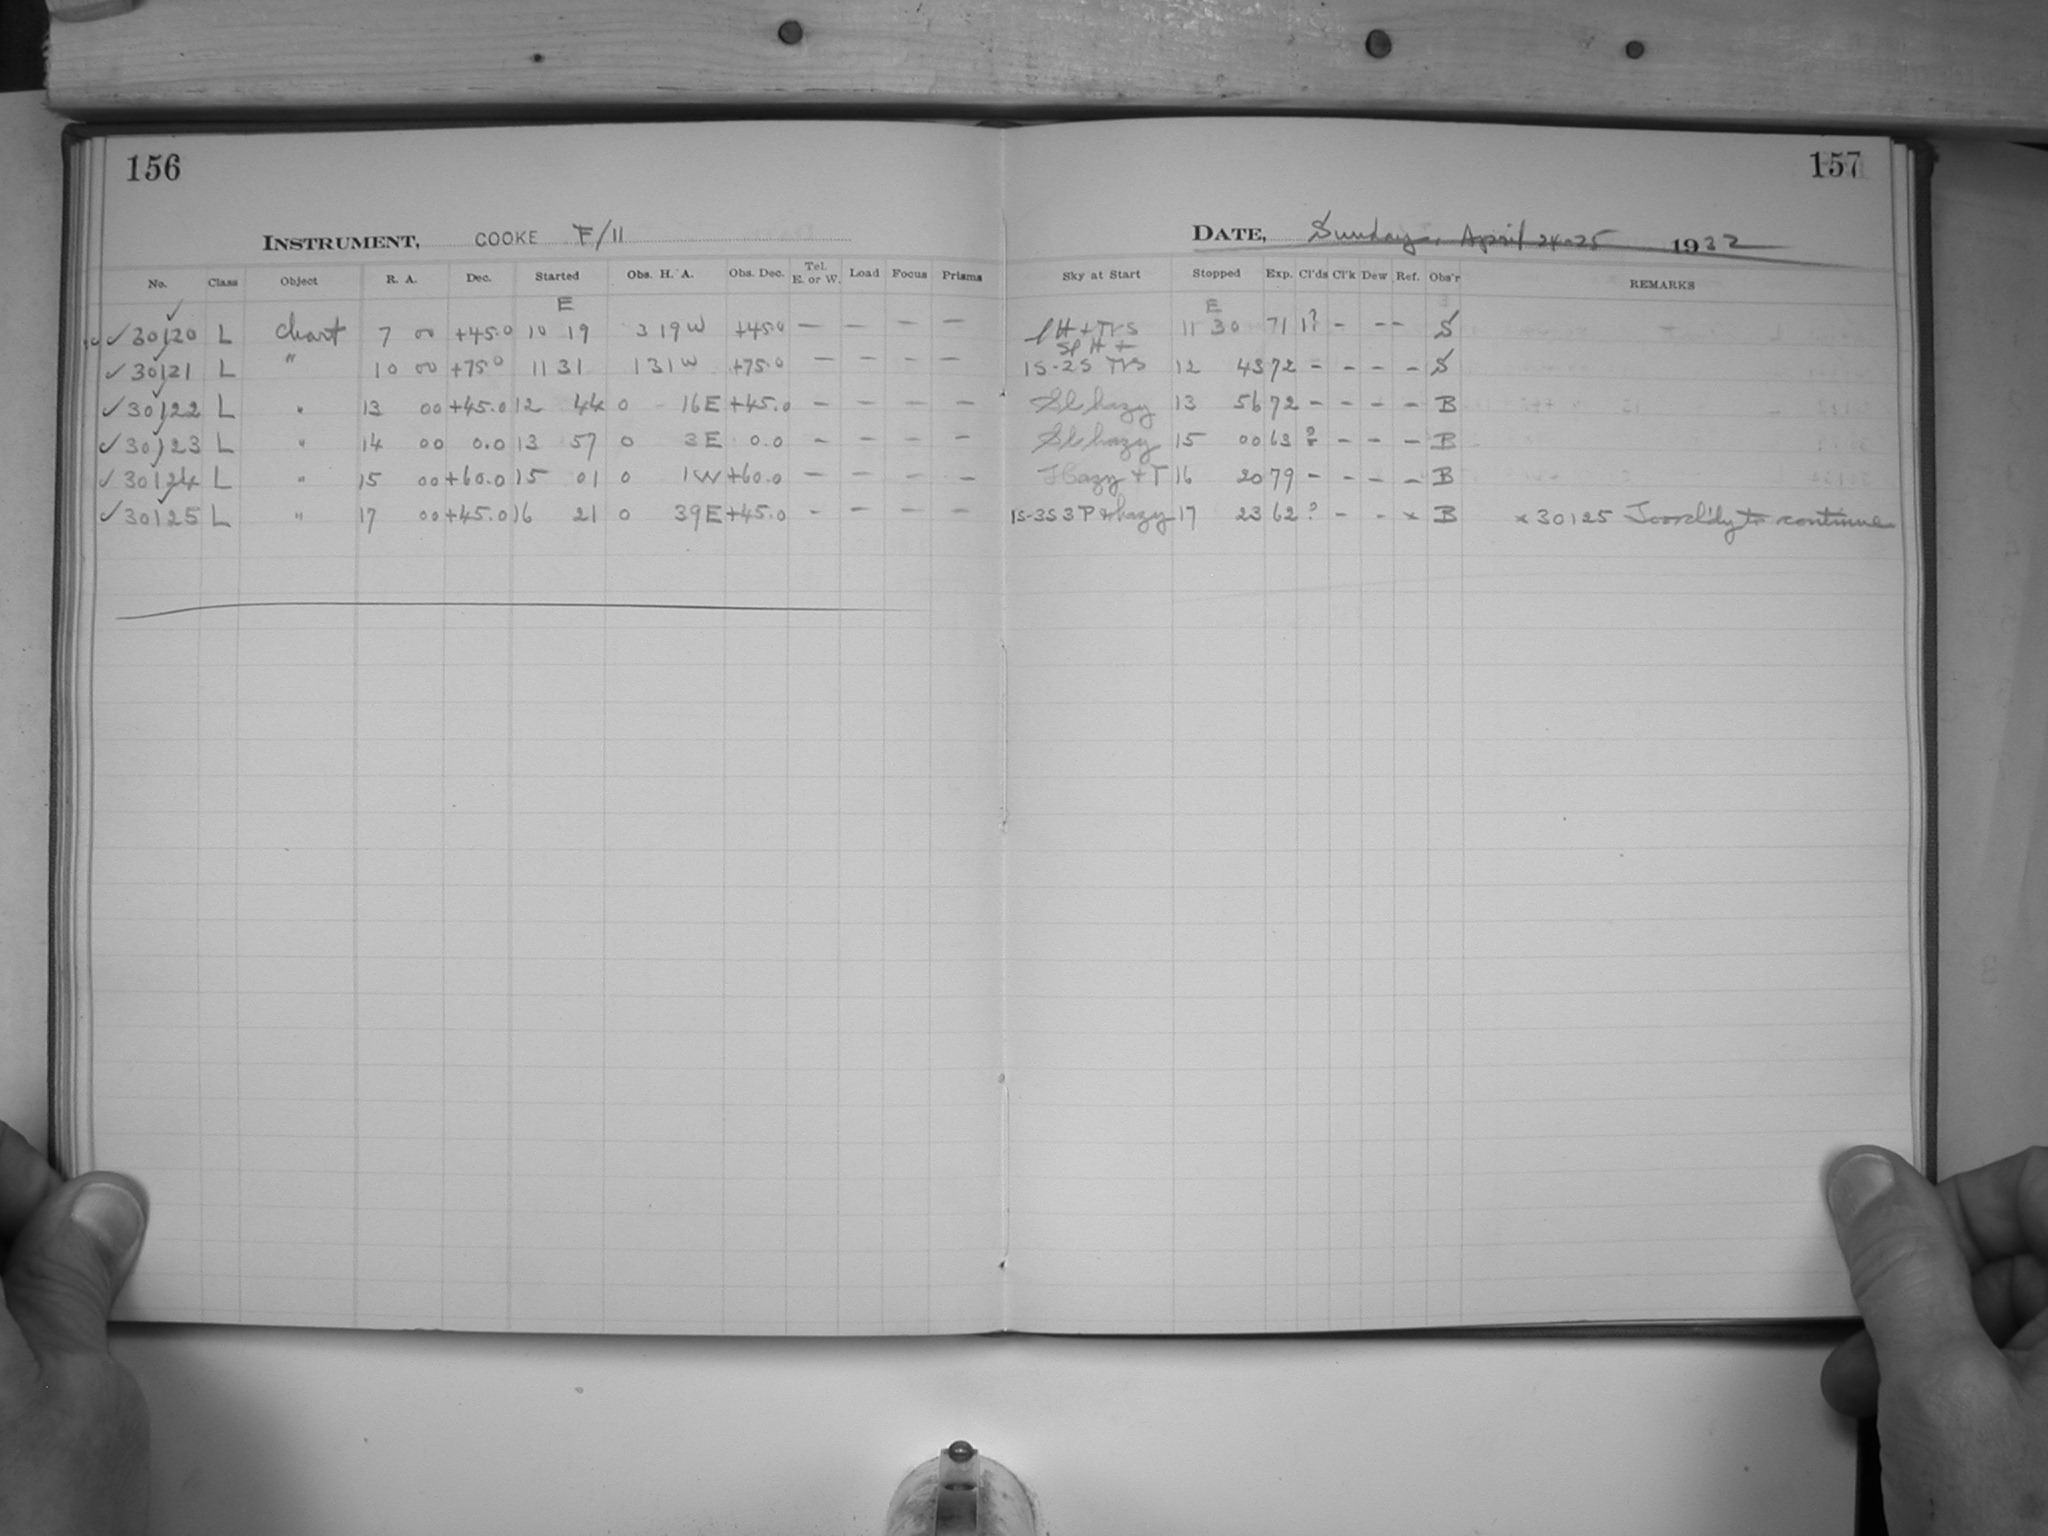 156
157
INSTRUMENT, COOKE F/11
DATE, Sunday, April 24-25 1932
No. Class Object R. A. Dec. Started Obs. H. A. Obs. Dec. Tel. E. or W. Load Focus Prisms Sky at Start Stopped Exp. Cl'ds Cl'k Dew Ref. Obs'r REMARKS
E E
✓ 30120 L Chart 7 00 +45.0 10 19 3 19 W +45.0 — — — — H + TVS 11 30 71 1? - - - S
Sl H +
✓ 30121 L " 10 00 +75.0 11 31 1 31 W +75.0 — — — — 1S-2S TVS 12 43 72 - - - - S
✓ 30122 L " 13 00 +45.0 12 44 0 16 E +45.0 — — — — Sl hazy 13 56 72 - - - - B
✓ 30123 L " 14 00 0.0 13 57 0 3 E 0.0 — — — — Sl hazy 15 00 63 ? - - - B
✓ 30124 L " 15 00 +60.0 15 01 0 1 W +60.0 — — — — Hazy + T 16 20 79 - - - - B
✓ 30125 L " 17 00 +45.0 16 21 0 39 E +45.0 - — — — 1S-3S 3P + hazy 17 23 62 ? - - x B x 30125 Too cl'dy to continue